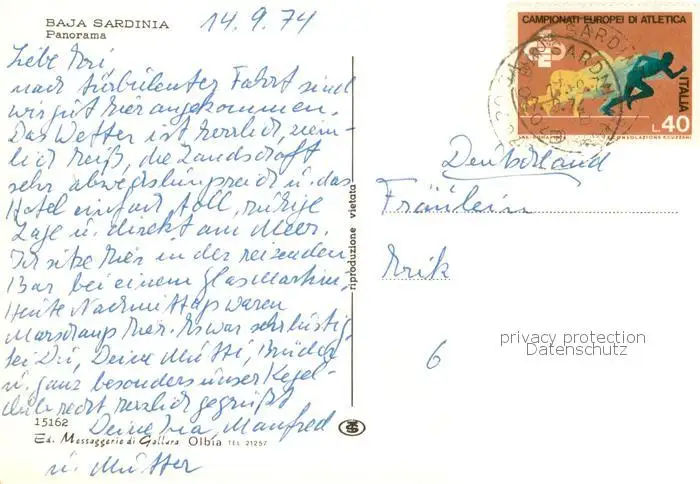 BAJA SARDINIA
Panorama
14.9.74
Liebe
nach turbulenter Fahrt sind
wir gut hier angekommen.
Das Wetter ist herrlich, ziem-
lich heiß, die Landschaft
sehr abwechslungsreich u. das
Hotel einfach toll, ruhige
Lage u. direkt am Meer.
Ich sitze hier in der reizenden
Bar bei einem Glas Martini,
Heute Nachmittag waren
hier. Es war sehr lustig
sei Du, Deine Mutti, Brüder
u. ganz besonders unser Kegel-
club recht herzlich gegrüßt
Deine Manfred
u. Mutter
15162
Ed. Messaggerie di Gallura Olbia TEL 21257
riproduzione vietata
CAMPIONATI EUROPEI DI ATLETICA
ITALIA
L. 40
Deutschland
Fräulein
6
privacy protection
Datenschutz